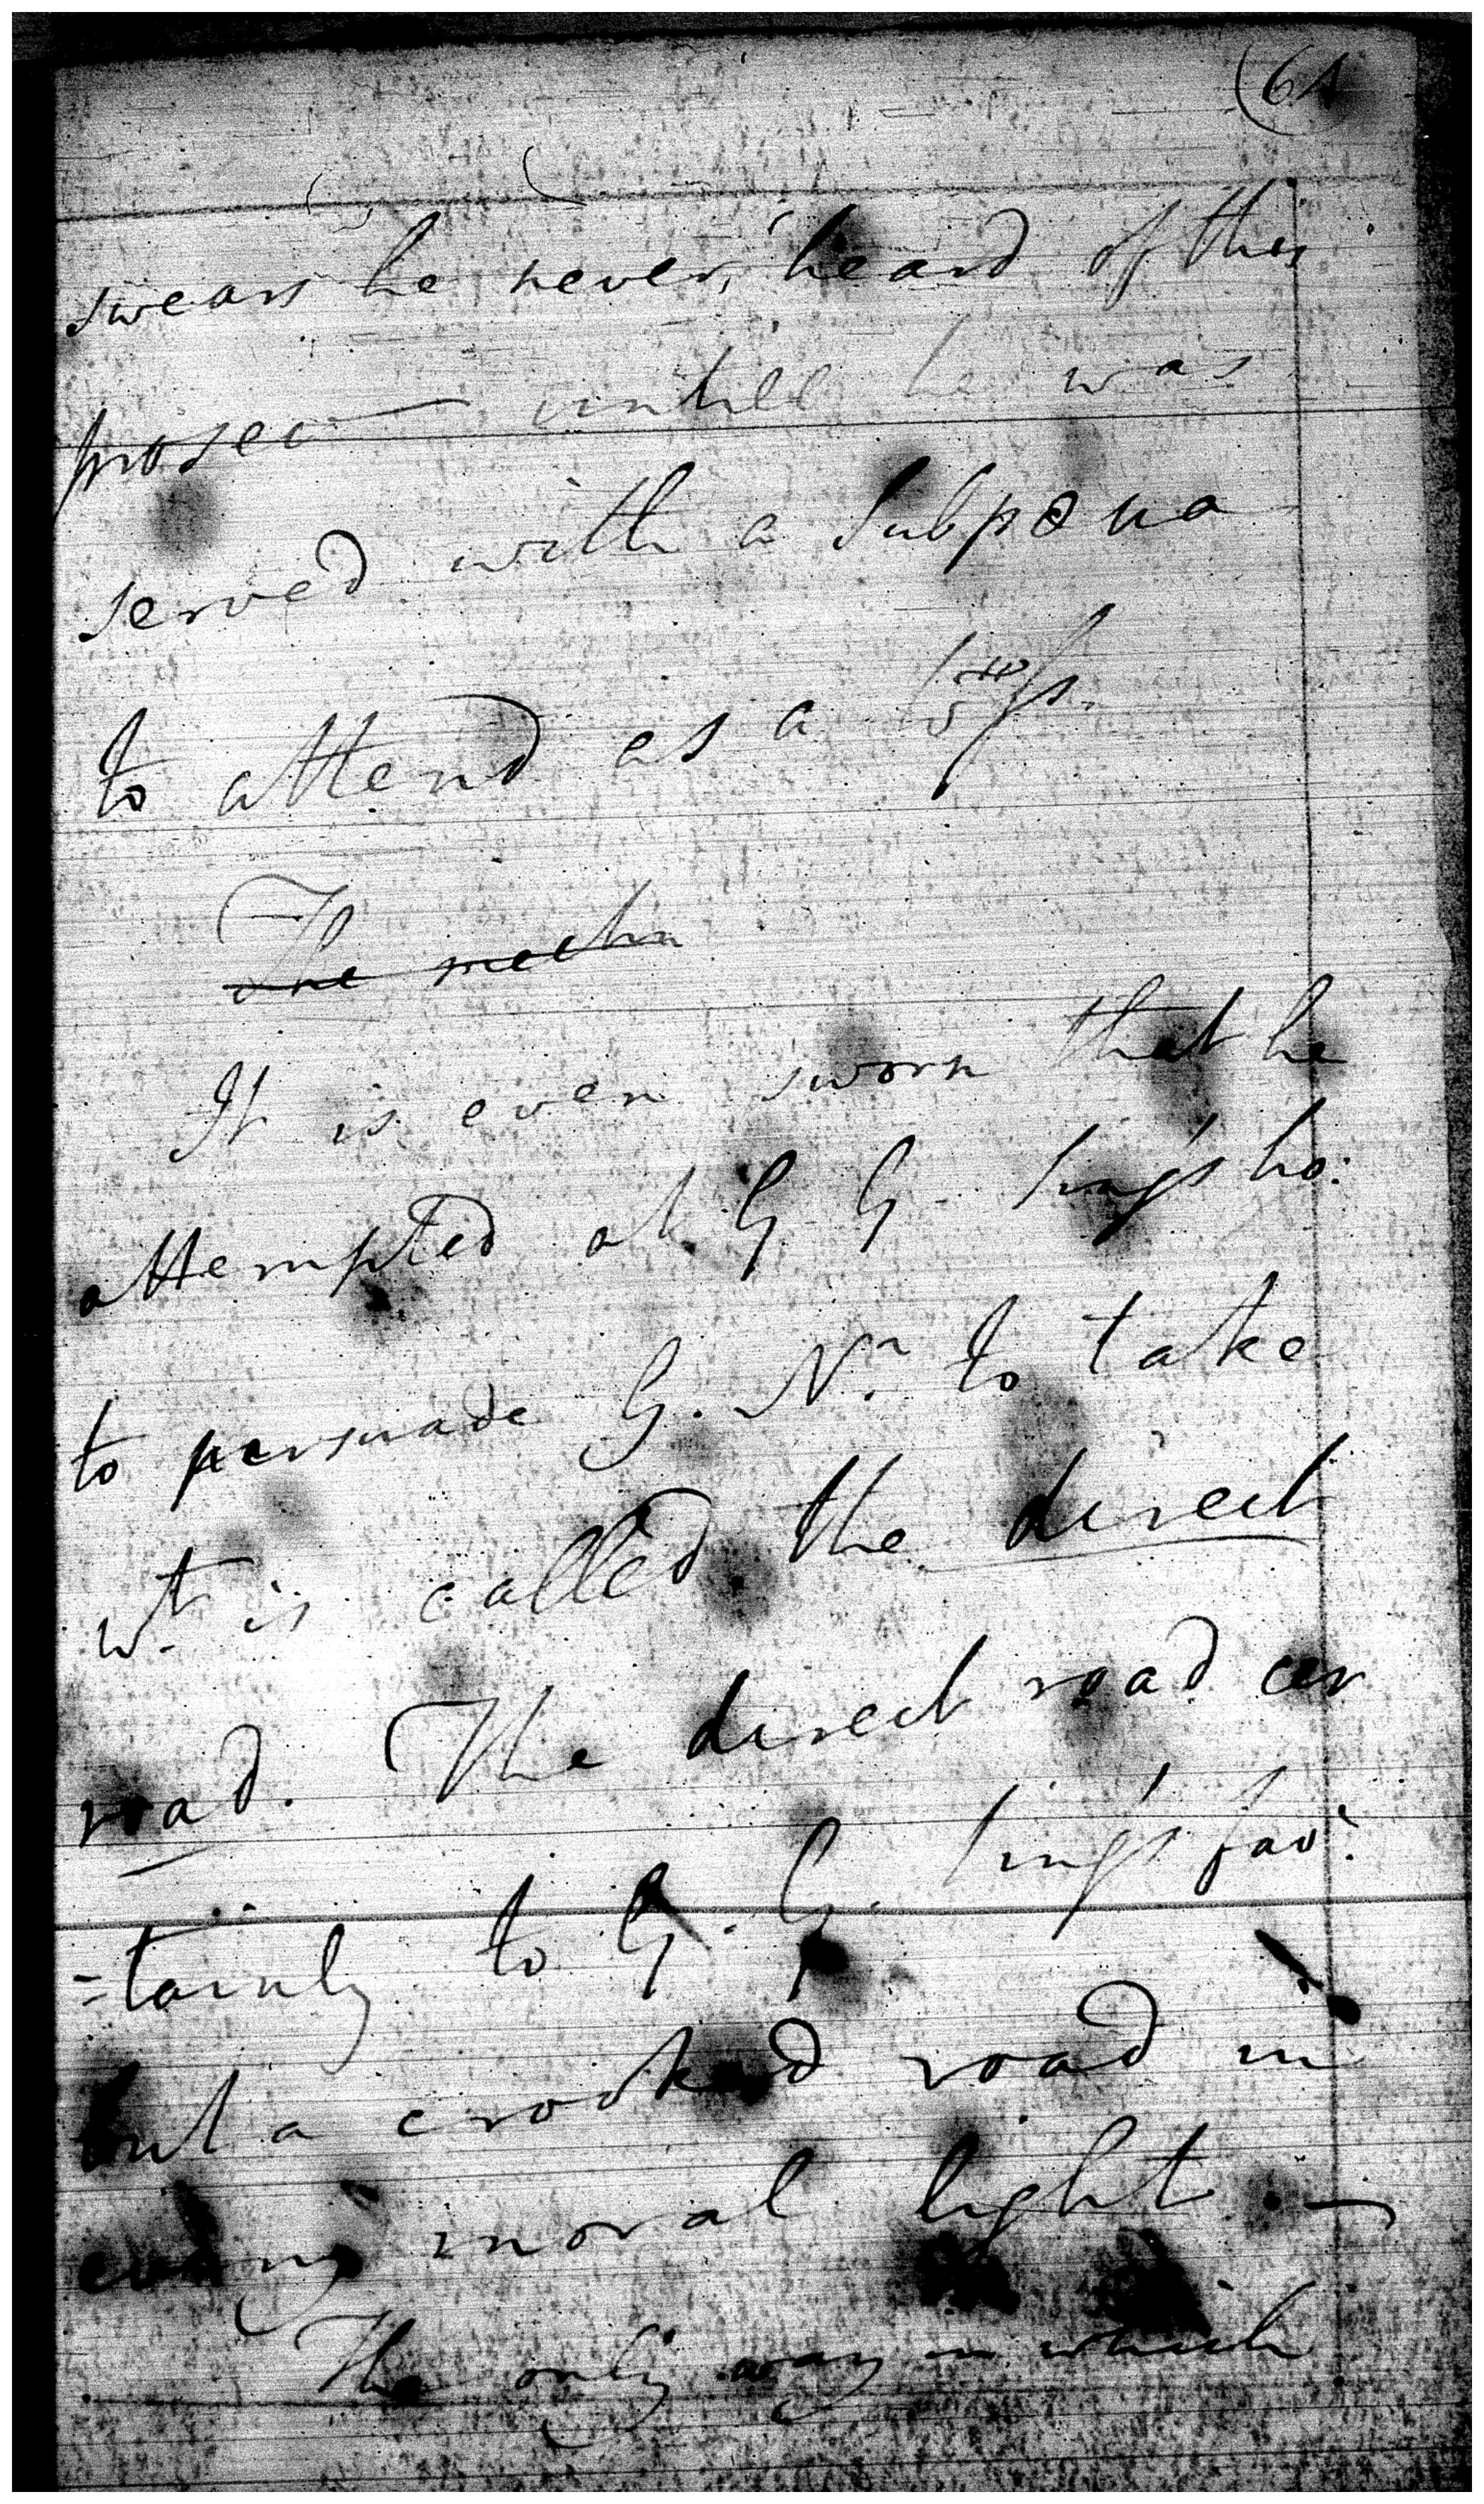 (61
swears he never heard of this
prosec— untill he was
served with a Subpœna
to attend as a
The
It is even sworn that he
attempted at G G ho:
to persuade G. N.r to take
wt. is called the direct
road. The direct road cer
=tainly to G. G. favr:
but a crooked road in
every moral light. —
The only way in which